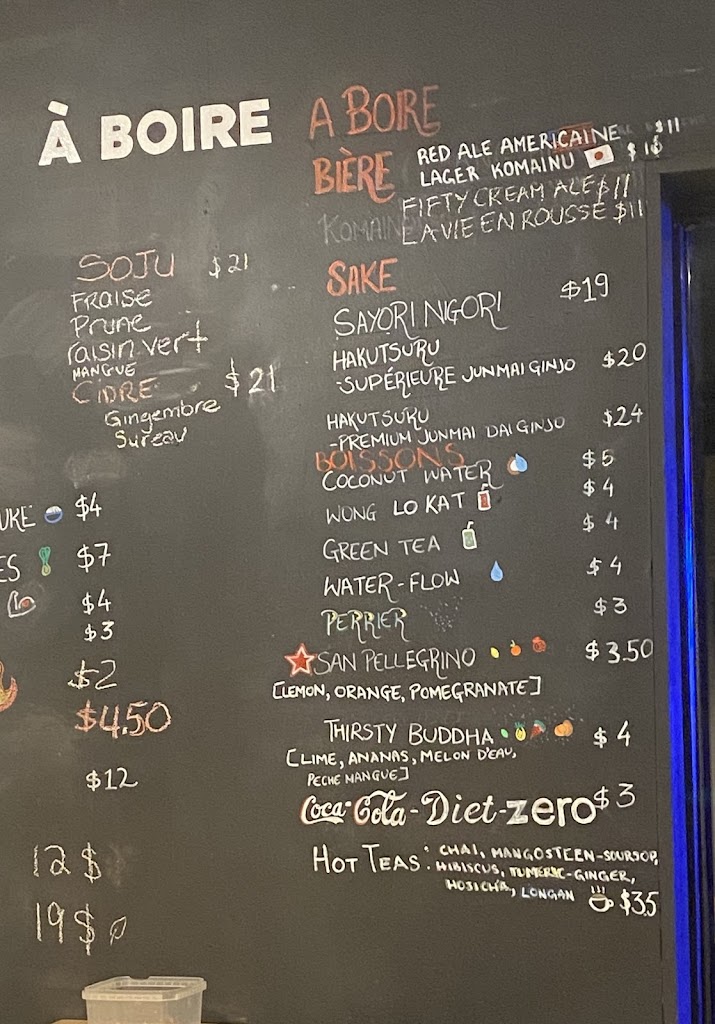 À BOIRE
A BOIRE
BIÈRE
RED ALE AMERICAINE $11
LAGER KOMAINU
FIFTY CREAM ALE $11
LA VIE EN ROUSSE $11
SOJU $21
FRAISE
Prune
raisin vert
MANGUE
CIDRE $21
Gingembre
Sureau
$4
$7
$4
$3
$2
$4.50
$12
12$
19$
SAKE
SAYORI NIGORI $19
HAKUTSURU
-SUPÉRIEURE JUNMAI GINJO $20
HAKUTSURU
-PREMIUM JUNMAI DAI GINJO $24
BOISSONS
COCONUT WATER $5
WONG LO KAT $4
GREEN TEA $4
WATER-FLOW $4
PERRIER $3
SAN PELLEGRINO $3.50
[LEMON, ORANGE, POMEGRANATE]
THIRSTY BUDDHA $4
[LIME, ANANAS, MELON D'EAU,
PECHE MANGUE]
Coca-Cola-Diet-zero $3
HOT TEAS: CHAI, MANGOSTEEN-SOURSOP,
HIBISCUS, TUMERIC-GINGER,
HOJICHA, LONGAN $3.5